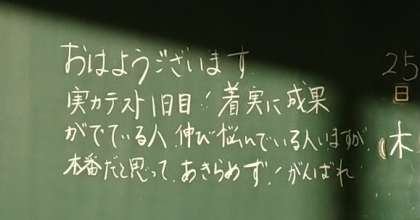 おはようございます
実力テスト1日目! 着実に成果
がでている人、伸び悩んでいる人いますが、
本番だと思って、あきらめず!がんばれ
25
日
(木